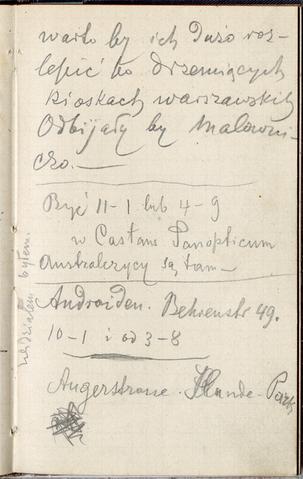 warto by ich dużo roz-
lepić po drzemiących
kioskach warszawskich
Odbijały by malowni-
czo. —
Być 11-1 lub 4-9
w Castans Panopticum
australczycy są tam —
Androiden. Behrenstr 49.
10-1 i od 3-8
Augerstrasse. Hunde-Park
widziałem byłem.